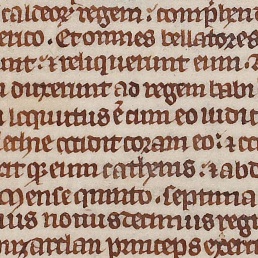 caldeoꝝ regem: comp̄hen
erico. Et omnes bellatores
unt: ⁊ reliquerunt eum. A
duxerunt ad regem babi
locutus ē cum eo iudit
echie occidit coram eo: ⁊ oc
it qꝫ eum cathenis: ⁊ abd
mense quinto. septima
ius nonus decimus regi
nzardan princeps exerc